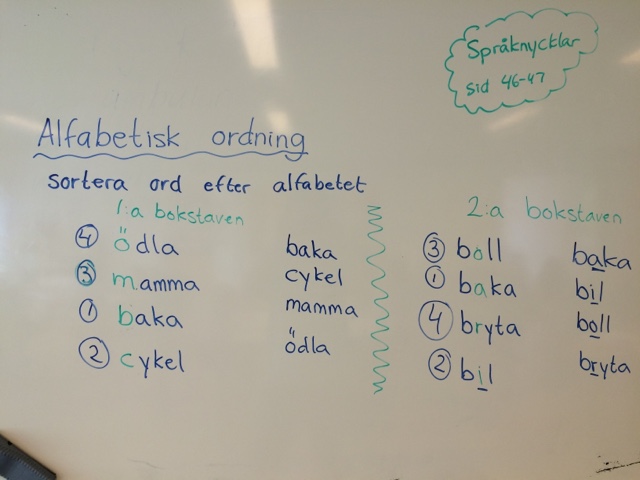 Språknycklar
sid 46-47
Alfabetisk ordning
sortera ord efter alfabetet
1:a bokstaven
4 ödla
3 mamma
1 baka
2 cykel
baka
cykel
mamma
ödla
2:a bokstaven
3 boll
1 baka
4 bryta
2 bil
baka
bil
boll
bryta